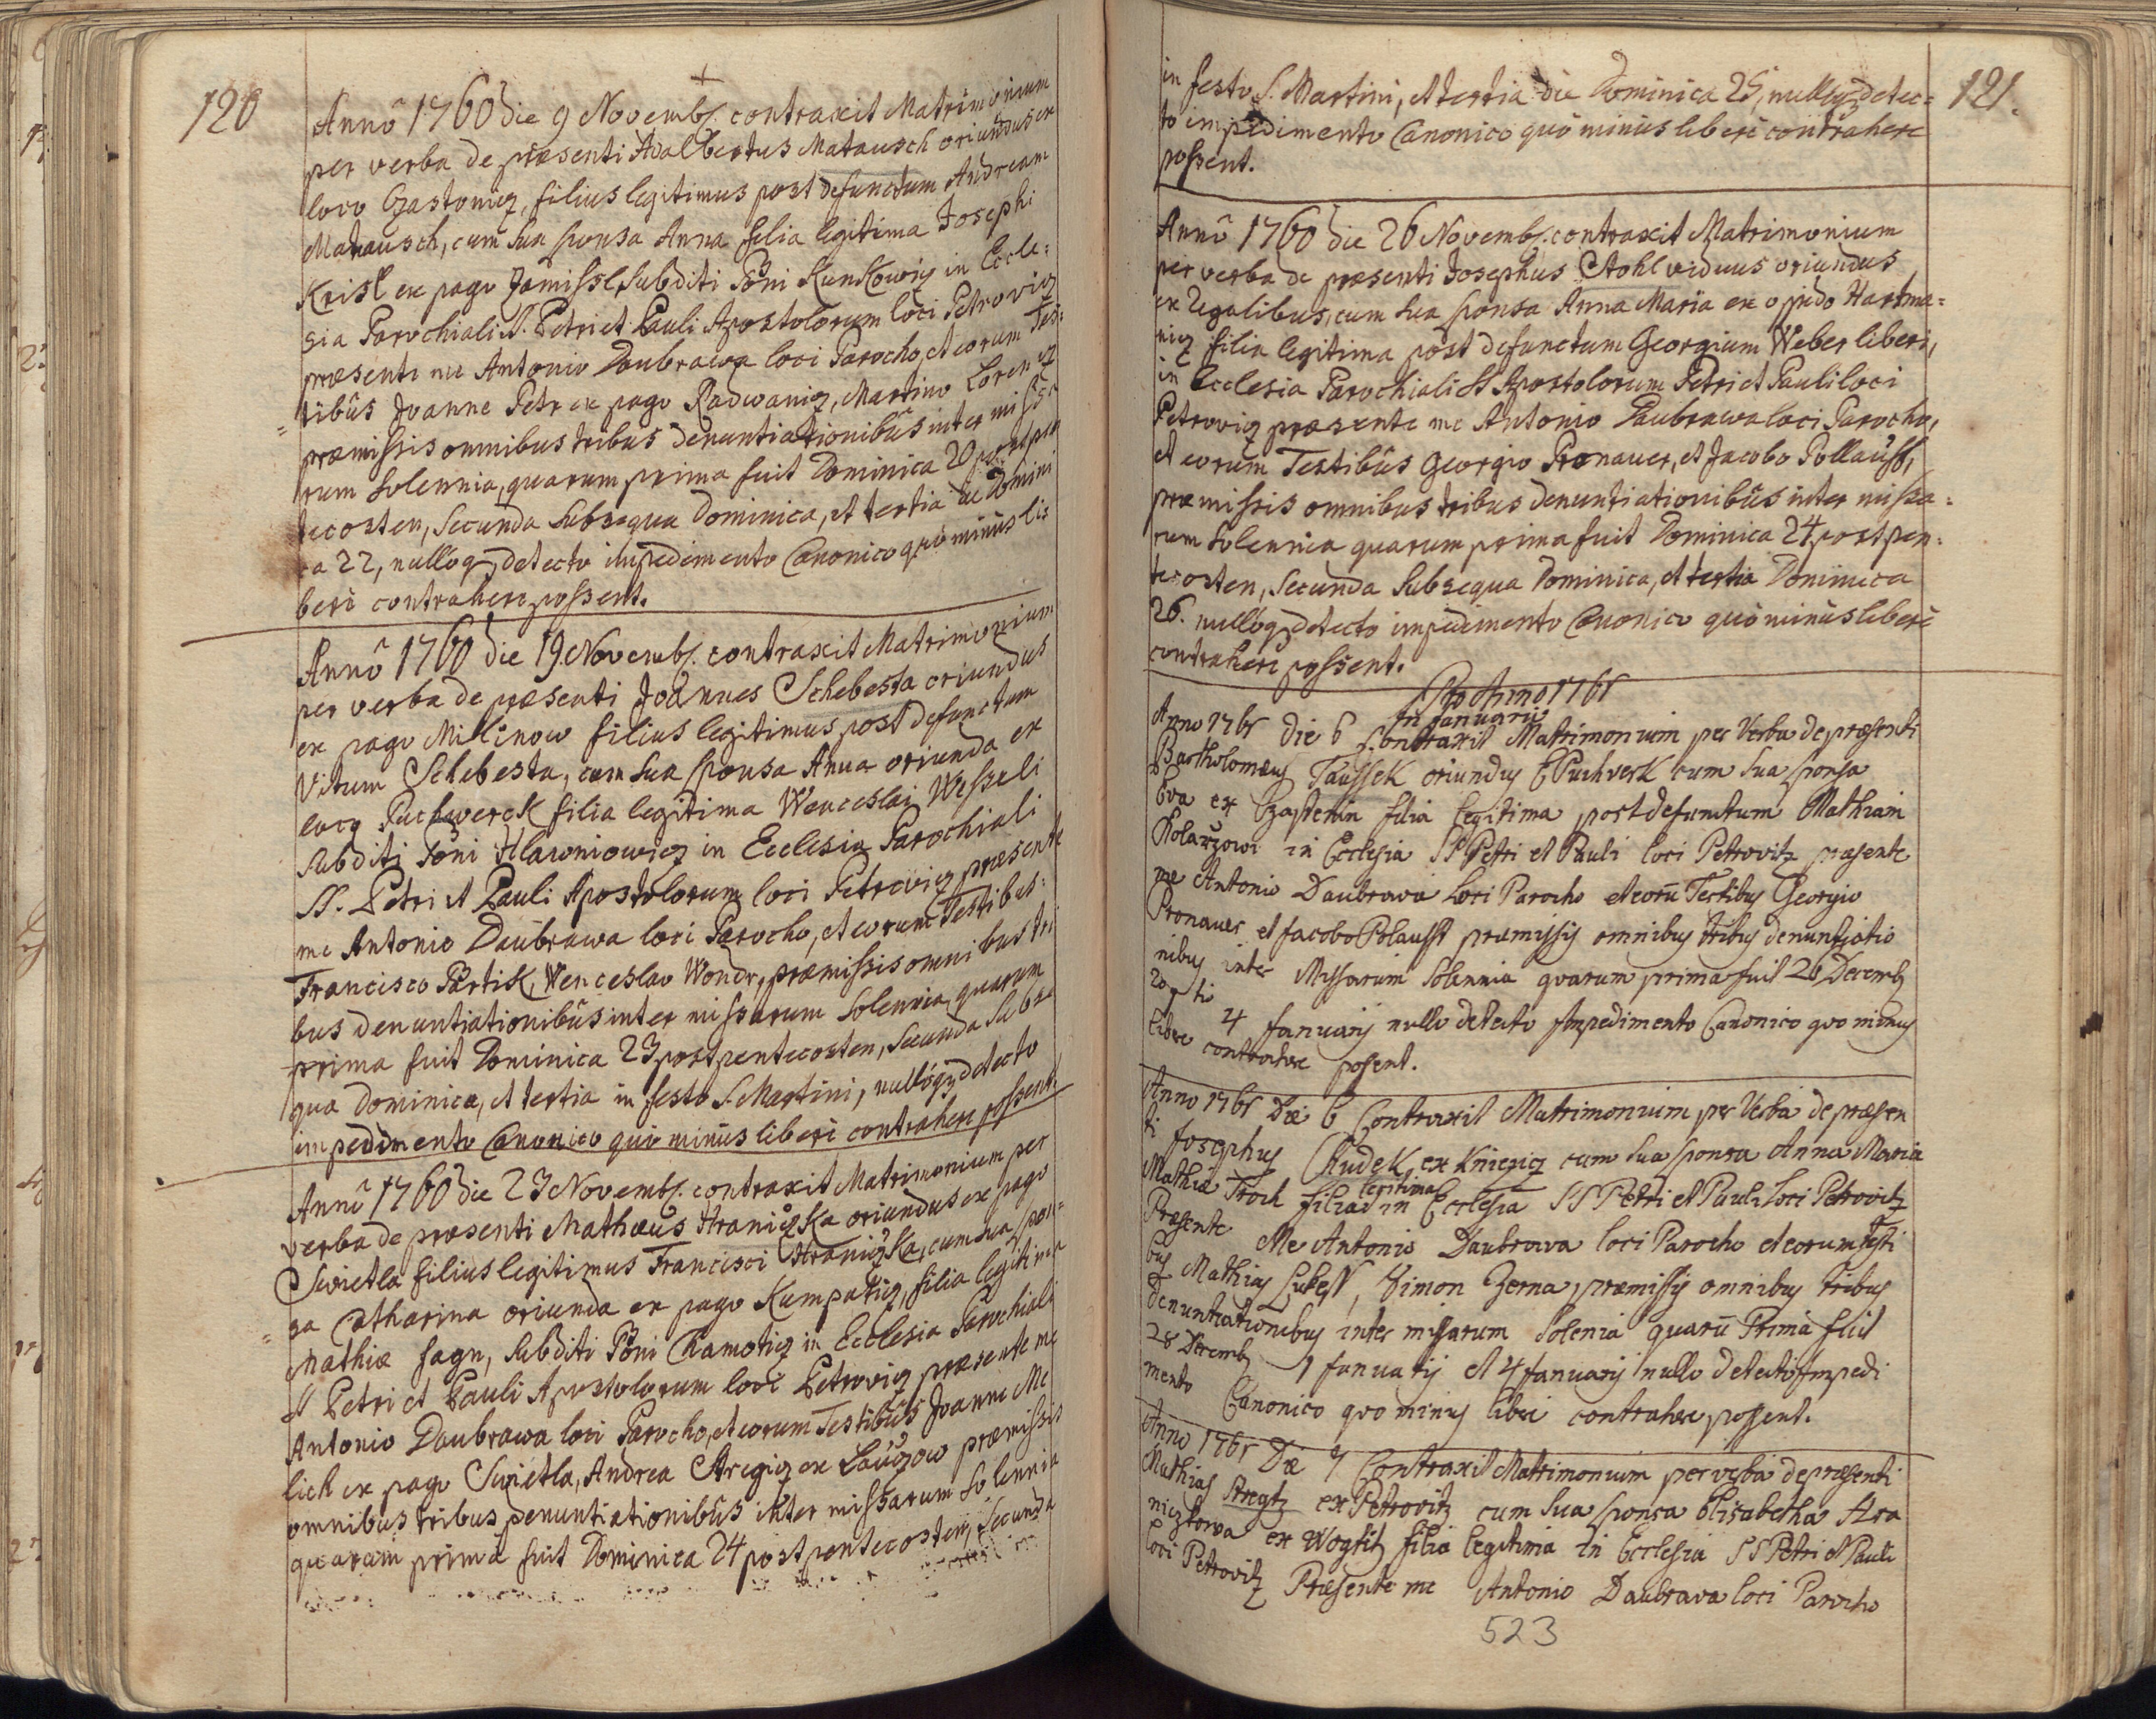 120
Annô 1760 die 9 Novemb. contraxit Matrimonium
per verba de præsenti Adalbertus Matausch oriundus ex
loco Czastoniz, filius legitimus post defunctum Andream
Matausch, cum sua sponsa Anna filia legitima Josephi
Krisl ex pago Jamissl, subditi Dni Kunkowiz in Eccle=
sia Parochiali S. Petri et Pauli Apostolorum loci Petroviz
præsente me Antonio Daubrawa loci Parocho, et eorum Tes=
tibûs Joanne Petr ex pago Radwaniz, Martino Lorenz
præmissis omnibus tribus denuntiationibûs inter missa
rum solennia, quarum prima fuit Dominica 20 post pen
tecosten, secunda subsequa Dominica, et tertia Domini
ca 22, nullóq detecto impedimento Canonico quô minûs li=
berè contrahere possent.
Annô 1760 die 19 Novemb. contraxit Matrimonium
per verba de præsenti Joannes Schebesta oriundus
ex pago Milinow filius legitimus post defunctum
Vitum Schebesta, cum sua sponsa Anna oriunda ex
loco Puchwerck filia legitima Wenceslai Wesseli
subditi Dni Hlawniowicz in Ecclesia Parochiali
SS. Petri et Pauli Apostolorum loci Petroviz præsente
me Antonio Daubrawa loci Parocho, et eorum Testibus=
Francisco Partik, Wenceslao Wondr, præmissis omnibus tri
bus denuntiationibûs inter missarum solennia, quarum
prima fuit Dominica 23 post pentecosten, secunda subse
qua Dominica, et tertia in festo S. Martini, nullóq detecto
impedimento Canonico quô minûs liberè contrahere possent.
Annô 1760 die 23 Novemb. contraxit Matrimonium per
verba de præsenti Mathæus Hraniczka oriundus ex pago
Swietla filius legitimus Francisci Hraniczka, cum sua spon=
sa Catharina oriunda ex pago Kumpatiz, filia legitima
Mathiæ Jagn, subditi Dni Chamotiz in Ecclesia Parochiali
SS Petri et Pauli Apostolorum loci Petroviz præsente me
Antonio Daubrawa loci Parocho, et eorum Testibûs Joanne Me
lich ex pago Swietla, Andrea Stregiz ex Lauczow præmissis
omnibus tribus denuntiationibûs inter missarum solennia
quarum prima fuit Dominica 24 post pentecosten, secunda
121.
in festo S. Martini, et tertia die Dominica 25, nullóq detec=
to impedimento Canonico quô minûs liberè contrahere
possent.
Annô 1760 die 26 Novemb. contraxit Matrimonium
per verba de præsenti Josephus Stohl viduus oriundus
ex Regalibus, cum sua sponsa Anna Maria ex oppido Hartma=
niz filia legitima post defunctum Georgium Weber liberi,
in Ecclesia Parochiali SS Apostolorum Petri et Pauli loci
Petroviz præsente me Antonio Daubrawa loci Parocho,
et eorum Testibûs Georgio Pronauer, et Jacobo Pollauss,
præmissis omnibus tribus denuntiationibûs inter missa=
rum solennia quarum prima fuit Dominica 24 post pen=
tecosten, secunda subsequa Dominica, et tertia Dominica
26. nullóq detecto impedimento Canonico quô minûs liberè
contrahere possent.
Pro Anno 1761
in Januario
Anno 1761 die 6 Contraxit Matrimonium per Verba de præsenti
Bartholomæus Taussek oriundus E Puchverk cum sua sponsa
Eva ex Czastenin filia legitima post defunctum Mathiam
Kolarzowi in Ecclesia SS Petri et Pauli loci Petrovitz præsente
me Antonio Daubrawa Loci Parocho et eorū Testibus Georgio
Pronauer et Jacobo Polausst præmissis omnibus tribus denuntiatio
nibus inter Missarum Solennia quarum prima fuit 26 Decemb
4 Januarij nullo detecto Impedimento Canonico quo minus
libere contrahere possent.
Anno 1761 Die 6 Contraxit Matrimonium per Verba de præsen
ti Josephus Chudek ex Kniezicz cum sua sponsa Anna Maria
Mathiæ Troch filia legitima in Ecclesia SS Petri et Pauli loci Petrovitz
Præsente Me Antonio Daubrawa loci Parocho et eorum Testi
bus Mathias Lukess, Simon Zerna, præmissis omnibus tribus
Denuntiationibus inter missarum Solenia quarū Prima fuit
28 Decemb 1 Januarij et 4 Januarij nullo detecto Impedi
mento Canonico quo minus libere contrahere possent.
Anno 1761 Die 7 Contraxit Matrimonium per verba de præsenti
Mathias Stregtz ex Petrovitz cum sua sponsa Elisabetha Hra
niczkowa ex Wogtitz filia legitima in Ecclesia SS Petri et Pauli
loci Petrovitz Præsente me Antonio Daubrava loci Parocho
523